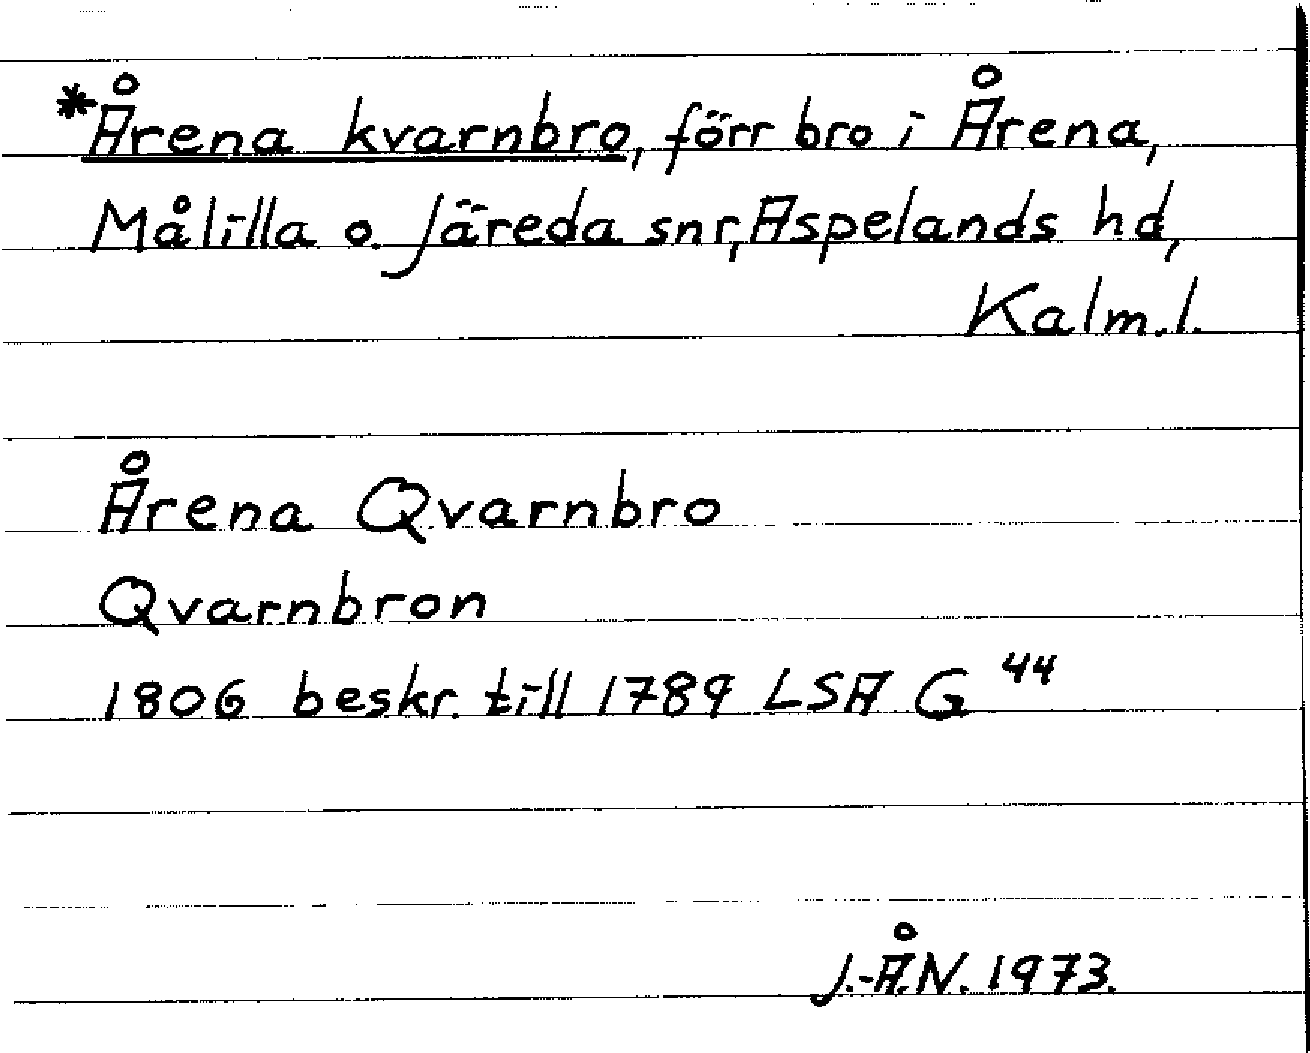 *Årena kvarnbro, förr bro i Årena,
Målilla o. Järeda snr, Aspelands hd,
Kalm. l.
Årena Qvarnbro
Qvarnbron
1806 beskr. till 1789 LSA G 44
J.-Å.N. 1973.